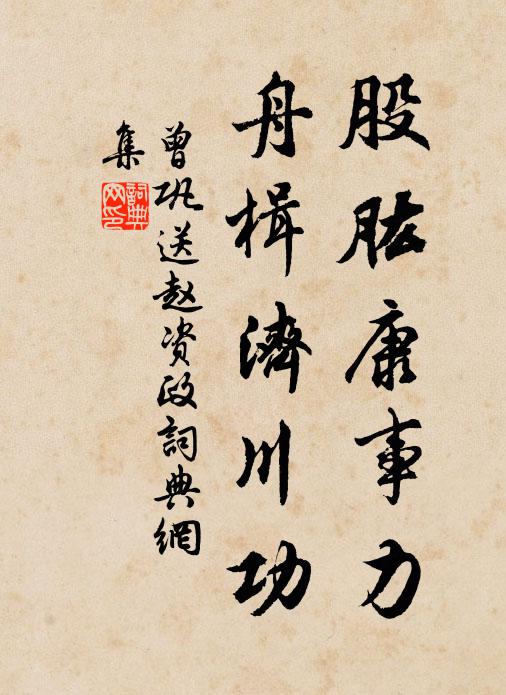 股肱康事力
舟楫濟川功
曾巩送赵资政詞典網
集
詞典
网印